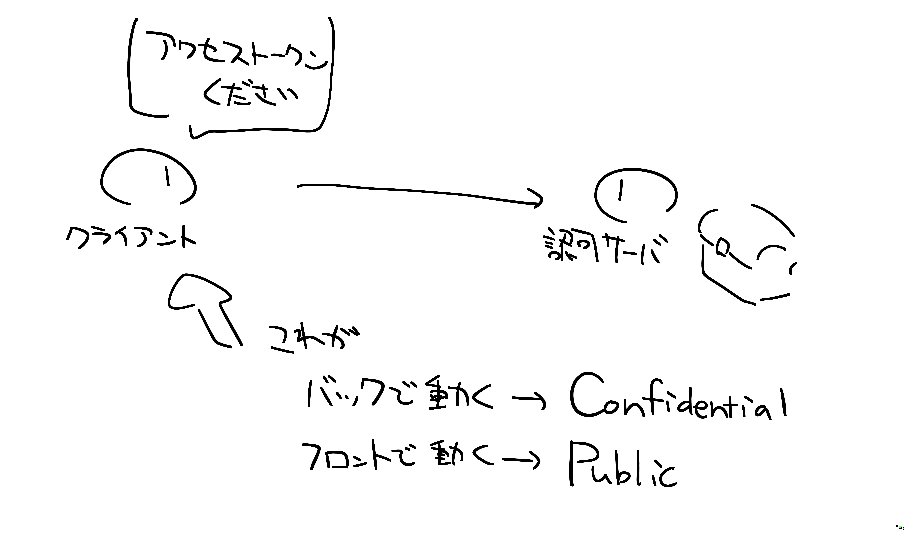 アクセストークン
ください
クライアント
認可サーバ
これが
バックで動く→Confidential
フロントで動く→Public